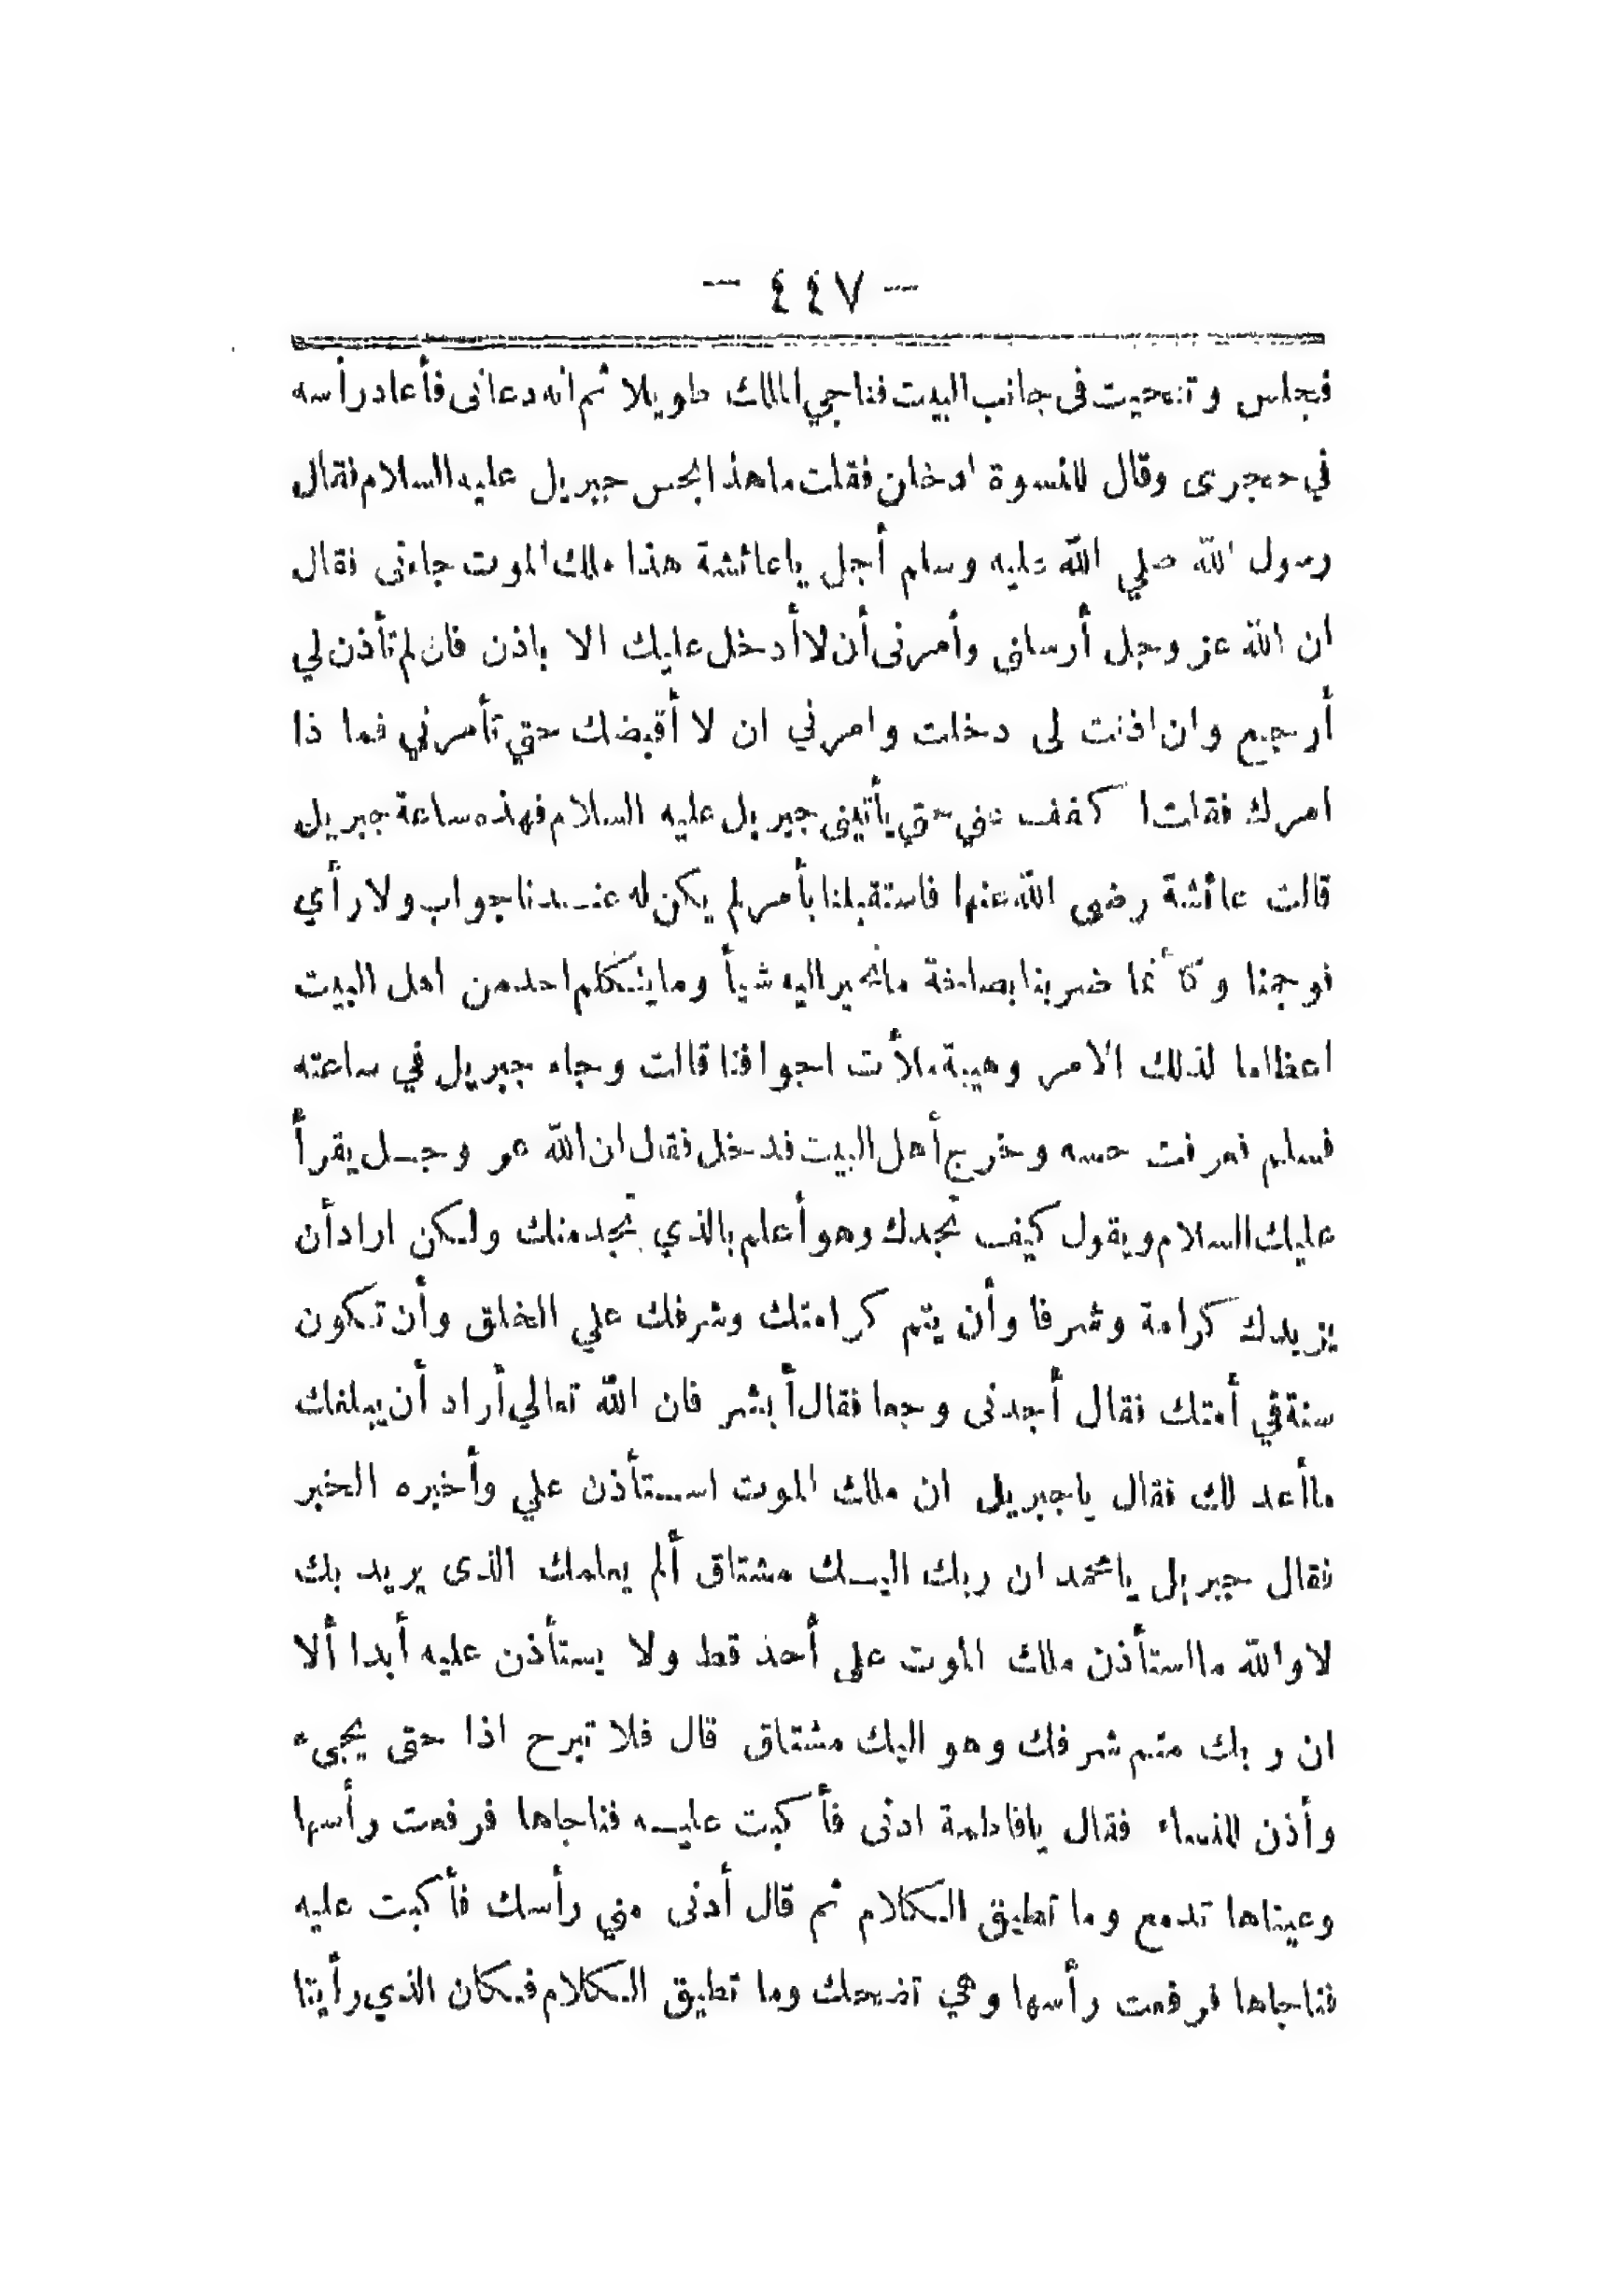 — ٤٤٧ —
فجلس وتنحيت فى جانب البيت فناجي الملك طويلا ثم انه دعانى فأعاد رأسه
في حجرى وقال للنسوة ادخلن فقلت ما هذا بحس جبريل عليه السلام فقال
رسول الله صلي الله عليه وسلم أجل يا عائشة هذا ملك الموت جاءنى فقال
ان الله عز وجل أرسلنى وأمرنى أن لا أدخل عليك الا باذن فان لم تأذن لي
أرجع وان اذنت لى دخلت وامرني ان لا أقبضك حتي تأمرني فما ذا
امرك فقلت ا كفف عني حتي يأتينى جبريل عليه السلام فهذه ساعة جبريل
قالت عائشة رضى الله عنها فاستقبلنا بأمر لم يكن له عندنا جواب ولا رأي
فوجمنا وكأنما ضربنا بصاخة ما نحير اليه شيأ وما يتكلم احد من اهل البيت
اعظاما لذلك الامر وهيبة ملأت اجوافنا قالت وجاء جبريل في ساعته
فسلم فعرفت حسه وخرج أهل البيت فدخل فقال ان الله عز وجل يقرأ
عليك السلام ويقول كيف تجدك وهو أعلم بالذي تجد منك ولكن اراد أن
يزيدك كرامة وشرفا وأن يتم كرامتك وشرفك علي الخلق وأن تكون
سنة في أمتك فقال أجدنى وجعا فقال أبشر فان الله تعالي أراد أن يبلغك
ما أعد لك فقال يا جبريل ان ملك الموت استأذن علي وأخبره الخبر
فقال جبريل يا محمد ان ربك اليك مشتاق ألم يعلمك الذى يريد بك
لا والله ما استأذن ملك الموت على أحد قط ولا يستأذن عليه أبدا ألا
ان ربك متم شرفك وهو اليك مشتاق قال فلا تبرح اذا حتى يجىء
وأذن للنساء فقال يا فاطمة ادنى فأ كبت عليه فناجاها فرفعت رأسها
وعيناها تدمع وما تطيق الكلام ثم قال أدنى مني رأسك فأ كبت عليه
فناجاها فرفعت رأسها وهي تضحك وما تطيق الكلام فكان الذي رأينا